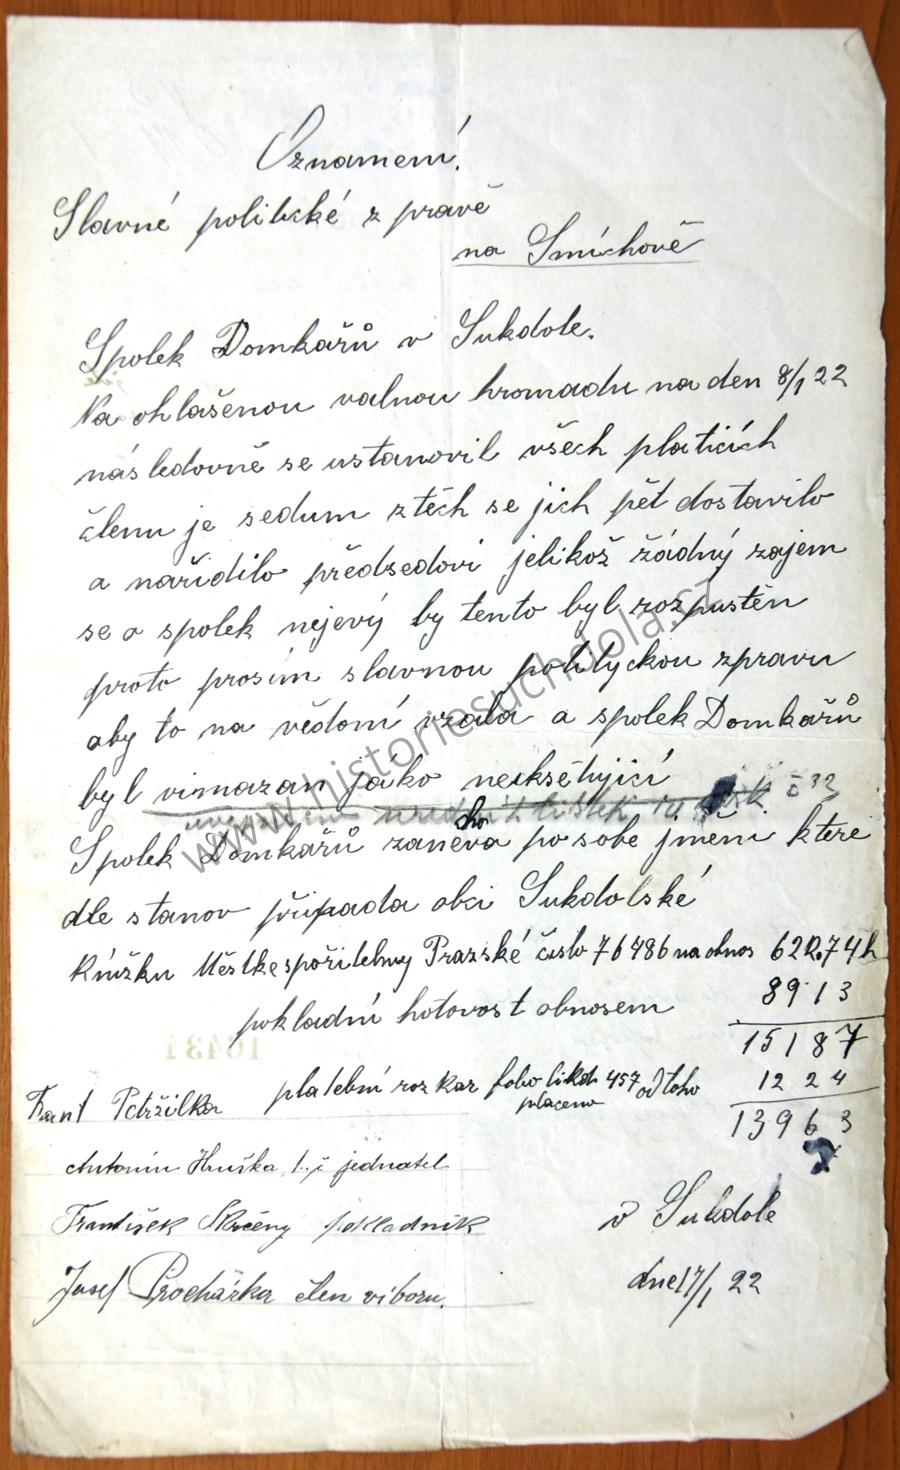 Oznamení.
Slavné politické z pravě
na Smíchově
Spolek Domkářů v Sukdole.
Na ohlašenou valnou hromadu na den 8/1 22
následovně se ustanovil všech platicích
členu je sedum z těch se jich pět dostavilo
a nařidilo předsedovi jelikož žádný zajem
se o spolek nejevý by tento byl rozpustěn
proto prosím slavnou polityckou zpravu
aby to na vědomí vzala a spolek Domkářů
byl vimazan jako neiksětujicí
č 32
Spolek Domkářů zanechava po sobe jměni ktere
dle stanov připada obci Sukdolské
Knížku Městkespořitelny Prazské čislo 76486 na obnos 62K.74h
pokladní hotovost obnosem 89 13
151 87
platební rozkaz folio likd. 457 od toho 12 24
placeno
139 63
Frant Petržilka
Antonín Hruška t. č jednatel
František pokladník
Josef Procházka člen viboru.
v Sukdole
dne 17/1 22
www.historiesuchdola.cz
10431